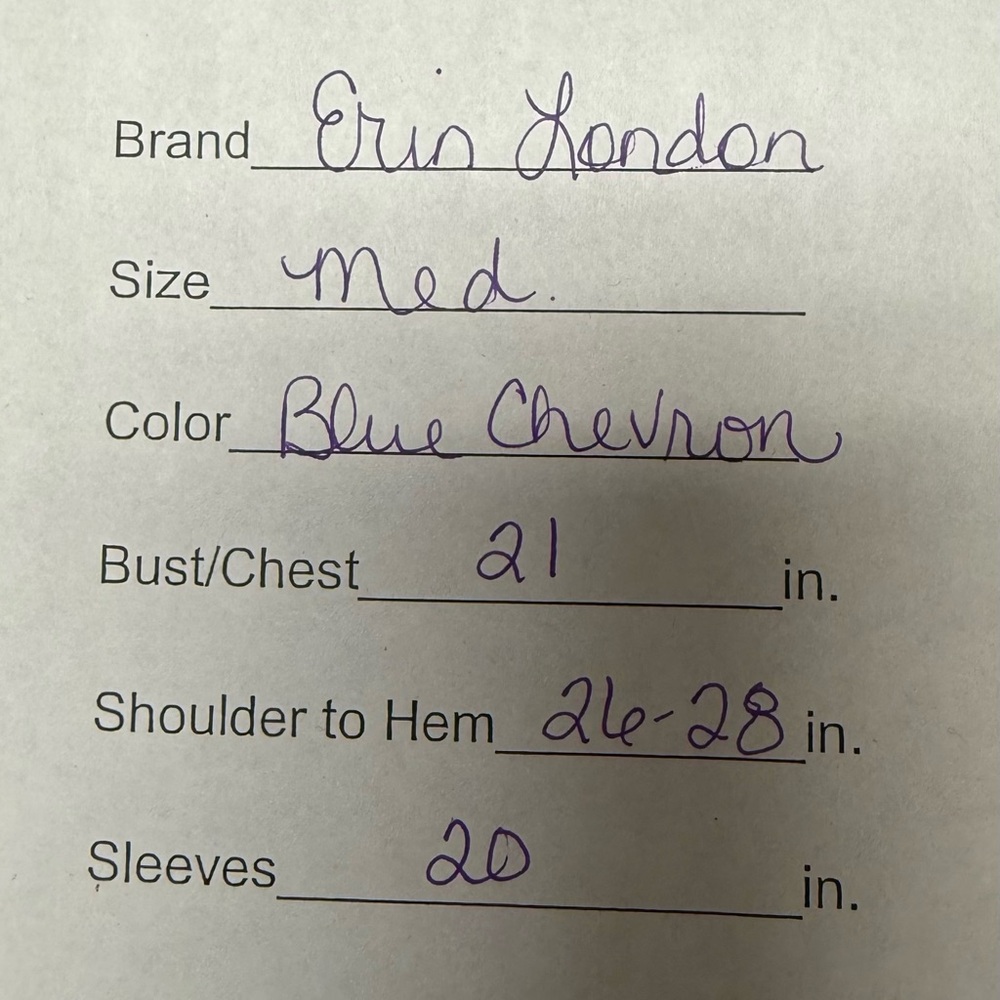 Brand Erin London
Size Med.
Color Blue Chevron
Bust/Chest 21 in.
Shoulder to Hem 26-28 in.
Sleeves 20 in.